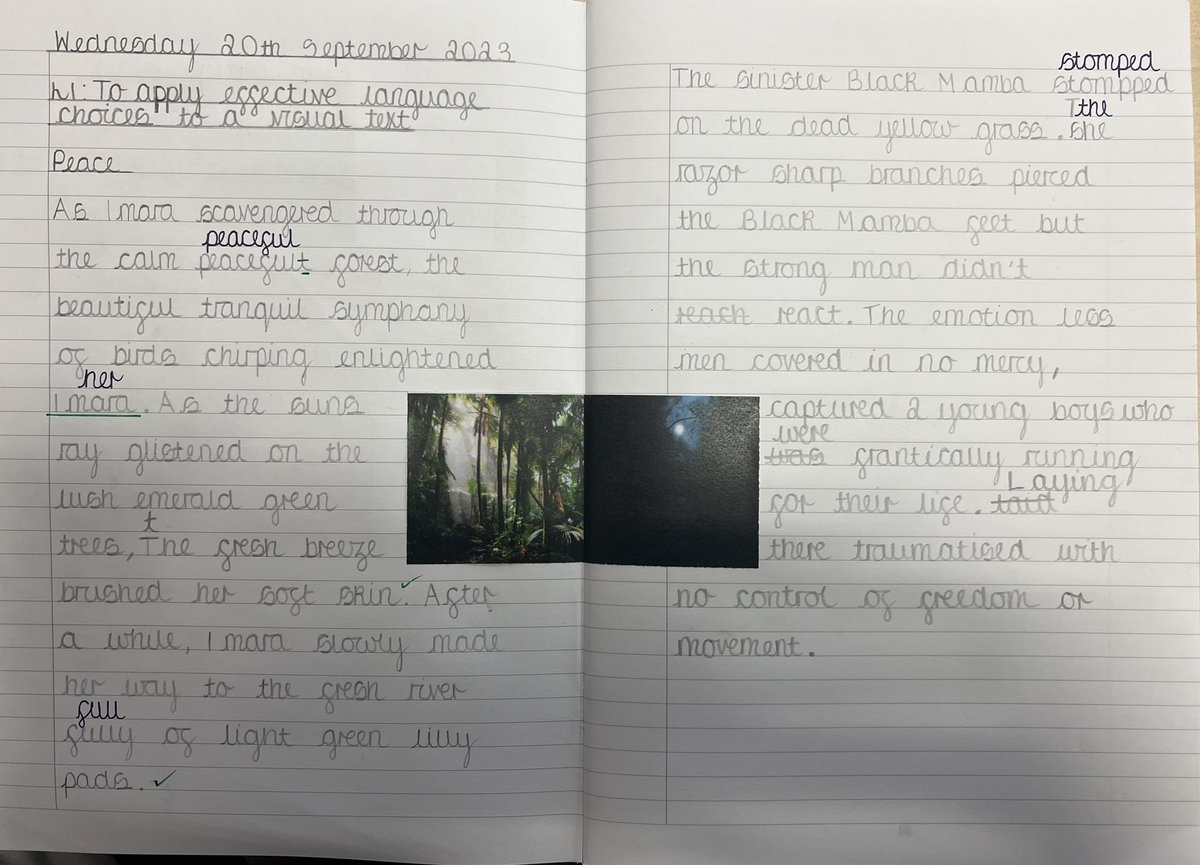 Wednesday 20th September 2023
LI: To apply effective language
choices to a visual text
Peace
As Imara scavengered through
peaceful
the calm peacefult forest, the
beautiful tranquil symphany
of birds chirping enlightened
her
Imara. As the suns
ray glistened on the
lush emerald green
t
trees, The fresh breeze
brushed her soft skin. After
a while, Imara slowly made
her way to the fresh river
full
fully of light green lilly
pads.
stomped
The sinister Black Mamba stompped
The
on the dead yellow grass. She
razor sharp branches pierced
the Black Mamba feet but
the strong man didn't
reach react. The emotion less
men covered in no mercy,
captured 2 young boys who
were
was frantically running
Laying
for their life.
there traumatised with
no control of freedom or
movement.